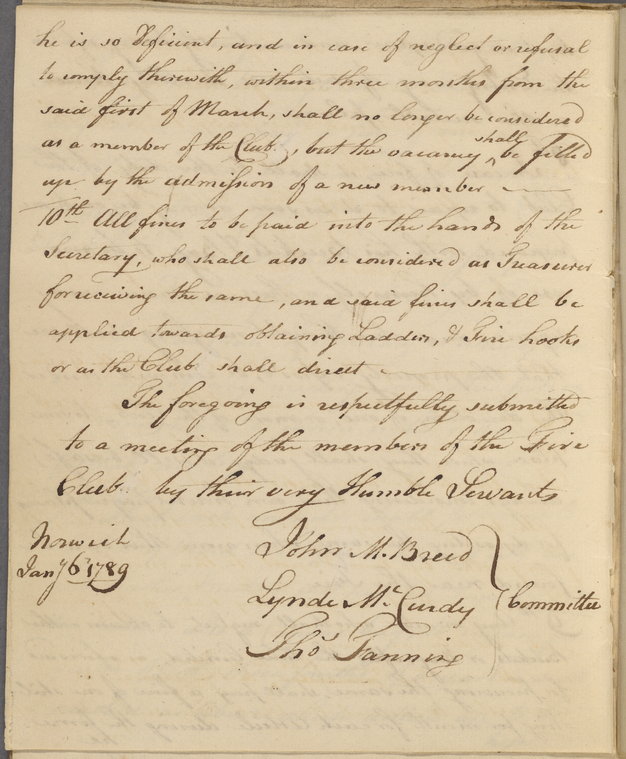 he is so Deficient, and in case of neglect or refusal
to comply therewith, within three months from the
said first of March, shall no longer be considered
as a member of the Club, but the vacancy shall be filled
up by the admission of a new member
10th All fines to be paid into the hands of the
Secretary, who shall also be considered as Treasurer
for receiving the same, and said fines shall be
applied towards obtaining Ladders, & Fire hooks
or as the Club shall direct
The foregoing is respectfully submitted
to a meeting of the members of the Fire
Club by their very Humble Servants
Norwich
Jany 6th 1789
John M. Breed
Lynde Mc Curdy
Committee
Thos Fanning